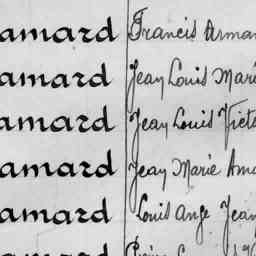 amard Francis Arman
amard Jean Louis Marie
amard Jean Louis Victo
amard Jean Marie Ama
amard Louis Ange Jean
amard